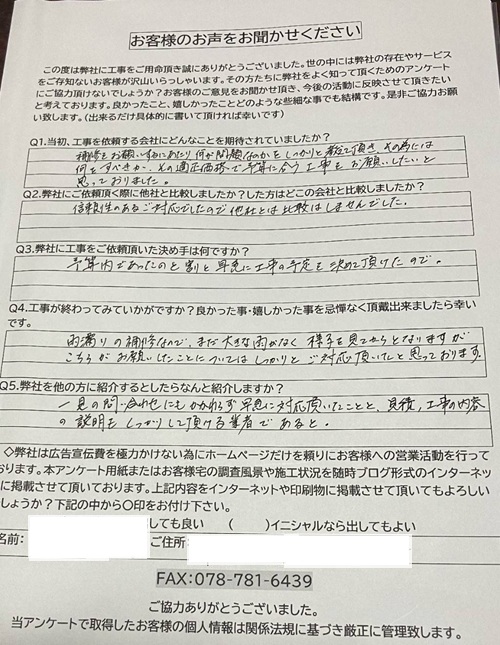 お客様のお声をお聞かせください
この度は弊社に工事をご用命頂き誠にありがとうございました。世の中には弊社の存在やサービス
をご存知ないお客様が沢山いらっしゃいます。その方たちに弊社をよく知って頂くためのアンケート
にご協力頂けないでしょうか？お客様のご意見をお聞かせ頂き、今後の活動に反映させて頂きたい
と考えております。良かったこと、嬉しかったことどのような些細な事でも結構です。是非ご協力お願
い致します。(出来るだけ具体的に書いて頂ければ幸いです)
Q1.当初、工事を依頼する会社にどんなことを期待されていましたか？
補修をお願いするにあたり何が問題なのかをしっかりと教えて頂き、その為には
何をすべきか、その適正価格で予算に合う工事をお願いしたいと
思っておりました。
Q2.弊社にご依頼頂く際に他社と比較しましたか？した方はどこの会社と比較しましたか？
信頼性のあるご対応でしたので他社とは比較はしませんでした。
Q3.弊社に工事をご依頼頂いた決め手は何ですか？
予算内であったのと割と早急に工事の予定を決めて頂けたので。
Q4.工事が終わってみていかがですか？良かった事・嬉しかった事を忌憚なく頂戴出来ましたら幸い
です。
雨漏りの補修なので、まだ大きな雨がなく様子を見てからとなりますが
こちらがお願いしたことについてはしっかりとご対応頂いたと思っております。
Q5.弊社を他の方に紹介するとしたらなんと紹介しますか？
一見の問い合わせにもかかわらず早急に対応頂いたことと、見積、工事の内容
の説明もしっかりして頂ける業者であると。
◇弊社は広告宣伝費を極力かけない為にホームページだけを頼りにお客様への営業活動を行って
おります。本アンケート用紙またはお客様宅の調査風景や施工状況を随時ブログ形式のインターネッ
に掲載させて頂いております。上記内容をインターネットや印刷物に掲載させて頂いてもよろしい
しょうか？下記の中から〇印をお付け下さい。
しても良い (　　)イニシャルなら出してもよい
名前: ご住所:
FAX:078-781-6439
ご協力ありがとうございました。
当アンケートで取得したお客様の個人情報は関係法規に基づき厳正に管理致します。